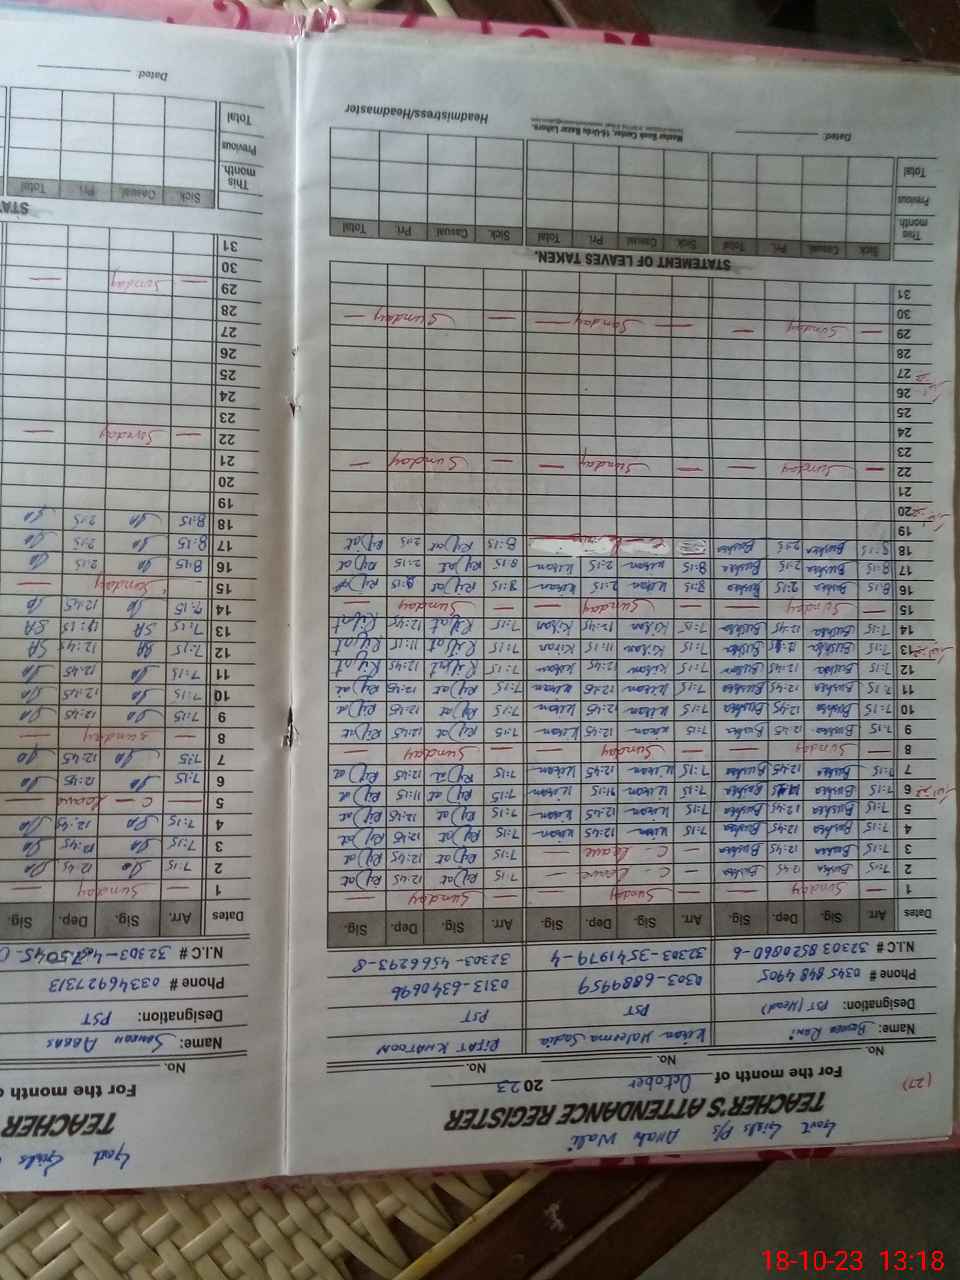 Govt Girls P/s Allah Wali
TEACHER'S ATTENDANCE REGISTER
(27) For the month of October 2023
No. No. No.
Name: Bushra Rani Kiran Haleema Sadia RIFAT KHATOON
Designation: PST (Head) PST PST
Phone # 0345 848 4905 0303-6889959 0313-6340696
N.I.C # 32303 8520860-6 32303-3541979-4 32303-4566293-8
Dates Arr. Sig. Dep. Sig. Arr. Sig. Dep. Sig. Arr. Sig. Dep. Sig.
1 — Sunday — — Sunday — — Sunday —
2 7:15 Bushra 12:45 Bushra — C- leave — 7:15 Rifat 12:45 Rifat
3 7:15 Bushra 12:45 Bushra — C- leave — 7:15 Rifat 12:45 Rifat
4 7:15 Bushra 12:45 Bushra 7:15 Kiran 12:45 Kiran 7:15 Rifat 12:45 Rifat
5 7:15 Bushra 12:45 Bushra 7:15 Kiran 12:45 Kiran 7:15 Rifat 12:45 Rifat
6 7:15 Bushra Bushra 7:15 Kiran 11:15 Kiran 7:15 Rifat 11:15 Rifat
7 7:15 Bushra 12:45 Bushra 7:15 Kiran 12:45 Kiran 7:15 Rifat 12:45 Rifat
8 — Sunday — — Sunday — — Sunday —
9 7:15 Bushra 12:45 Bushra 7:15 Kiran 12:45 Kiran 7:15 Rifat 12:45 Rifat
10 7:15 Bushra 12:45 Bushra 7:15 Kiran 12:45 Kiran 7:15 Rifat 12:45 Rifat
11 7:15 Bushra 12:45 Bushra 7:15 Kiran 12:45 Kiran 7:15 Rifat 12:45 Rifat
12 7:15 Bushra 12:45 Bushra 7:15 Kiran 12:45 Kiran 7:15 Rifat 12:45 Rifat
13 7:15 Bushra Bushra 7:15 Kiran 11:15 Kiran 7:15 Rifat 11:15 Rifat
14 7:15 Bushra 12:45 Bushra 7:15 Kiran 12:45 Kiran 7:15 Rifat 12:45 Rifat
15 — Sunday — — Sunday — — Sunday —
16 8:15 Bushra 2:15 Bushra 8:15 Kiran 2:15 Kiran 8:15 Rifat Rifat
17 8:15 Bushra 2:15 Bushra 8:15 Kiran 2:15 Kiran 8:15 Rifat 2:15 Rifat
18 8:15 Bushra 2:15 Bushra 8:15 Rifat 2:15 Rifat
19
20
21
22 — Sunday — — Sunday — — Sunday —
23
24
25
26
27
28
29 — Sunday — — Sunday — — Sunday —
30
31
STATEMENT OF LEAVES TAKEN.
Sick Casual Pri. Total Sick Casual Pri. Total Sick Casual Pri. Total
This month
Previous
Total
Dated:
Master Book Center, 16-Urdu Bazar Lahore.
Headmistress/Headmaster
Govt Girls
TEACHER
For the month o
No.
Name: Samrah Abbas
Designation: PST
Phone # 03346927313
N.I.C #
Dates Arr. Sig. Dep. Sig.
1 — Sunday —
2 7:15 Sa 12:45 Sa
3 7:15 Sa 12:45 Sa
4 7:15 Sa 12:45 Sa
5 — C - leave —
6 7:15 Sa 12:45 Sa
7 7:15 Sa 12:45 Sa
8 — Sunday —
9 7:15 Sa 12:45 Sa
10 7:15 Sa 12:45 Sa
11 7:15 Sa 12:45 Sa
12 7:15 SA 12:45 SA
13 7:15 SA 11:15 SA
14 7:15 Sa 12:45 Sa
15 — Sunday —
16 8:45 Sa 2:15 Sa
17 8:15 Sa 2:15 Sa
18 8:15 Sa 2:15 Sa
19
20
21
22 — Sunday —
23
24
25
26
27
28
29 — Sunday —
30
31
STA
Sick Casual Pri. Total
This month
Previous
Total
Dated
18-10-23 13:18